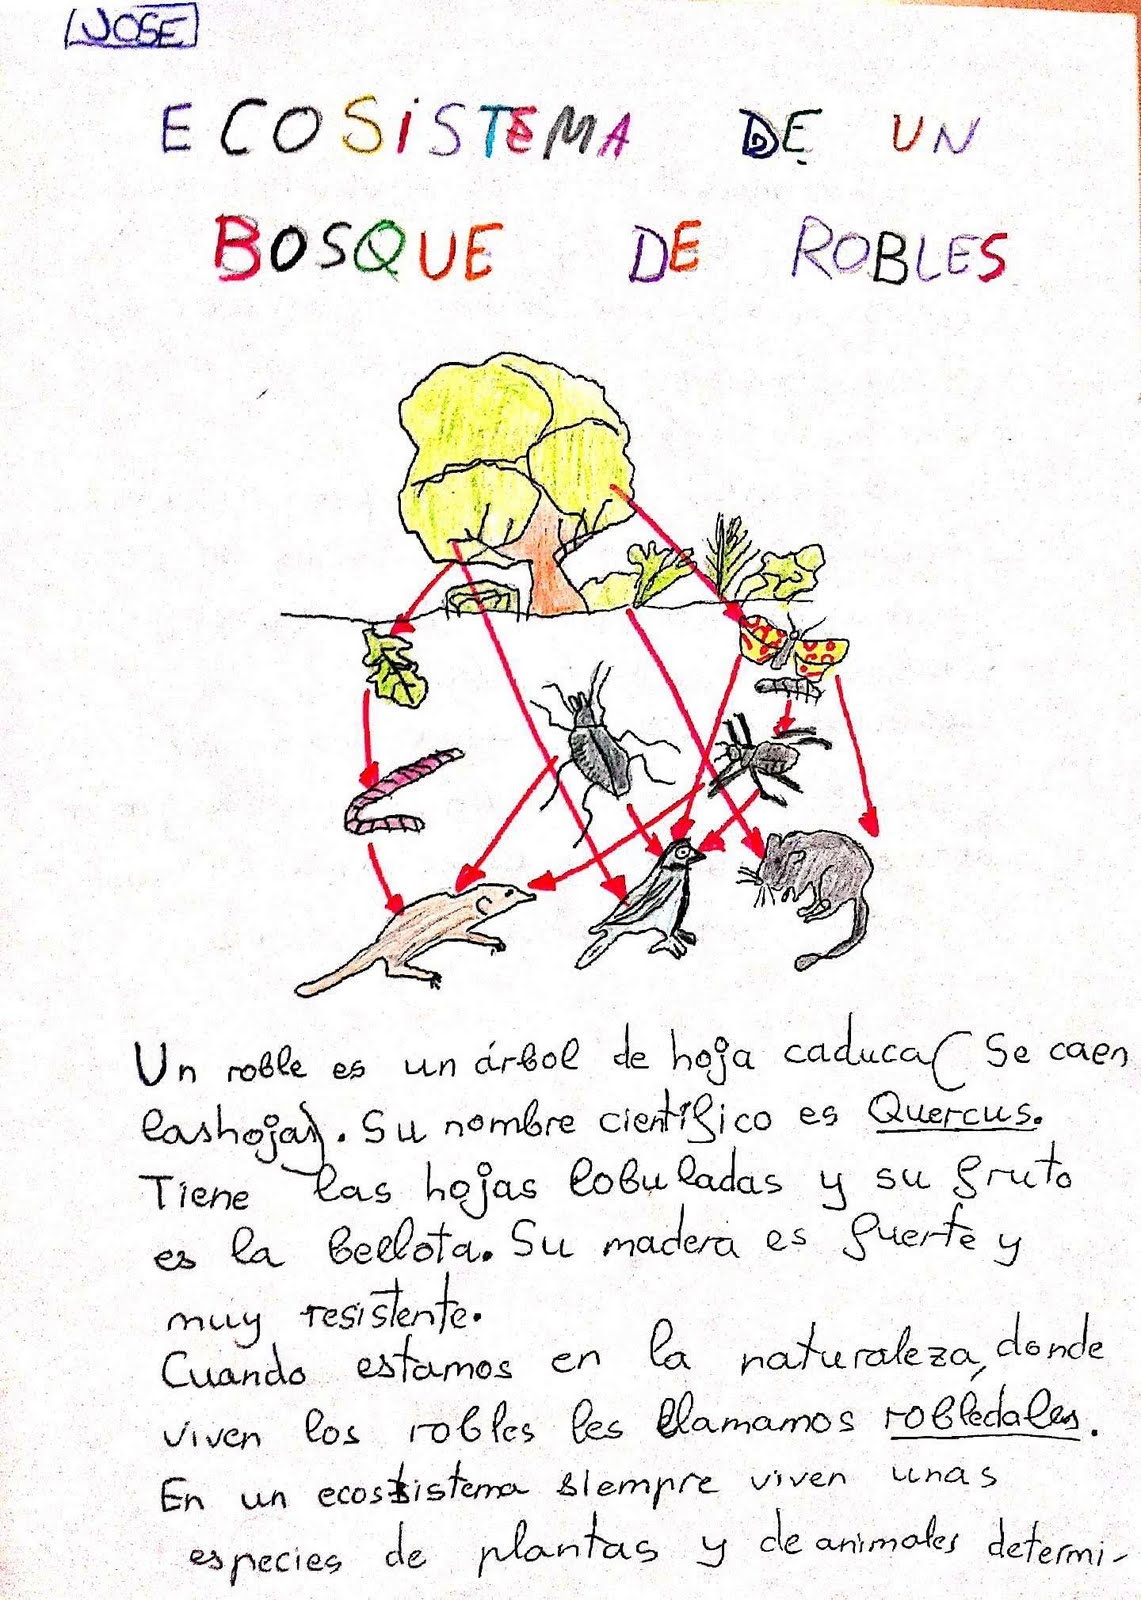 JOSE
ECOSiSTEMA DE UN
BOSQUE DE ROBLES
Un roble es un árbol de hoja caduca( Se caen
lashojas). Su nombre científico es Quercus.
Tiene las hojas lobuladas y su fruto
es la bellota. Su madera es fuerte y
muy resistente.
Cuando estamos en la naturaleza, donde
viven los robles les llamamos robledales.
En un ecosistema siempre viven unas
especies de plantas y de animales determi-